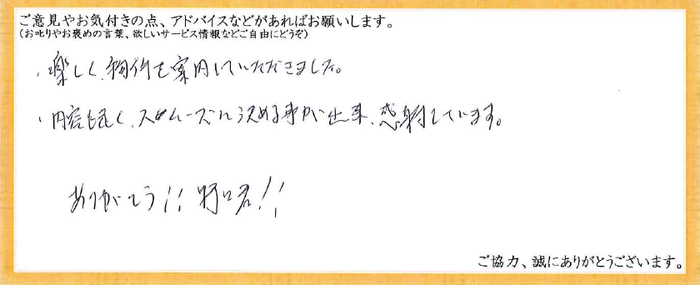 ご意見やお気付きの点、アドバイスなどがあればお願いします。
(お叱りやお褒めの言葉、欲しいサービス情報などご自由にどうぞ)
・楽しく、物件を案内していただきました。
・内容も良く、スムーズに決める事が出来、感謝しています。
ありがとう!! 野口君!!
ご協力、誠にありがとうございます。